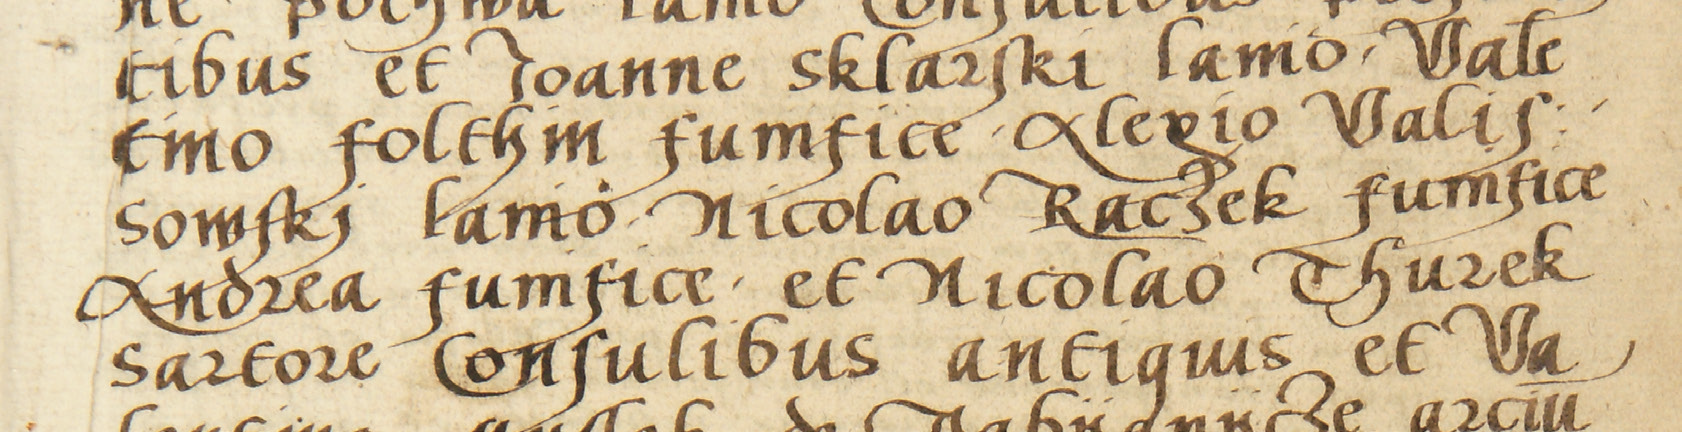 tibus et Joanne Sklarski lanio. Vale
tino folthin funifice. Alexio Valis:
Sowski lanio. Nicolao Raczek funifice
Andrea funifice. et Nicolao Thurek
Sartore Consulibus antiquis et Va